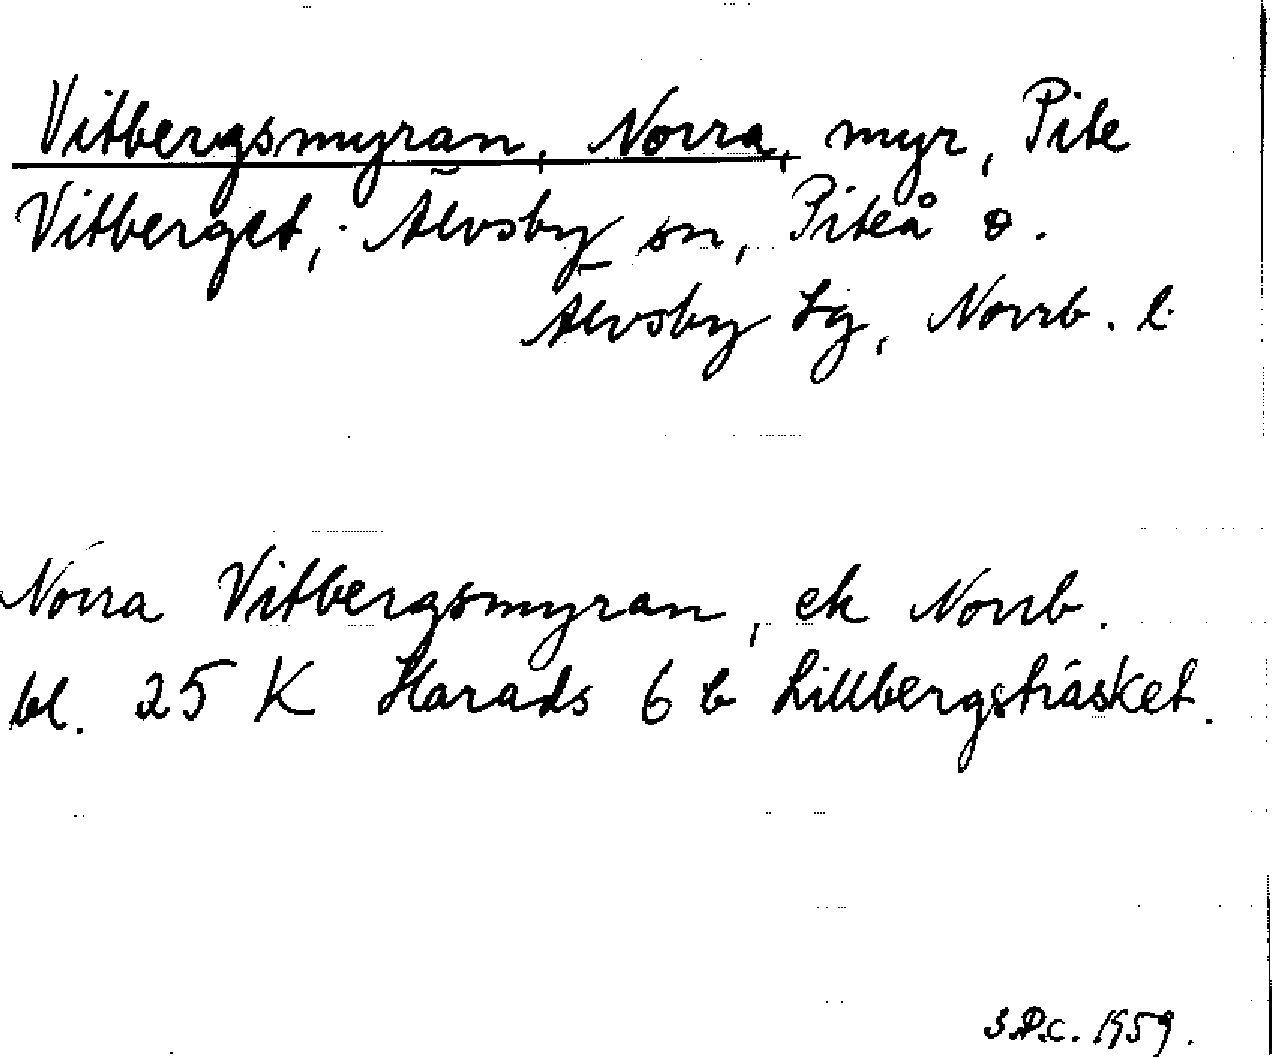 Vitbergsmyran, Norra, myr, Pite
Vitberget, Älvsby sn, Piteå ö.
Älvsby tg, Norrb. l.
Norra Vitbergsmyran, ek Norrb.
bl. 25 K Harads 6 b Lillbergsträsket.
1959.